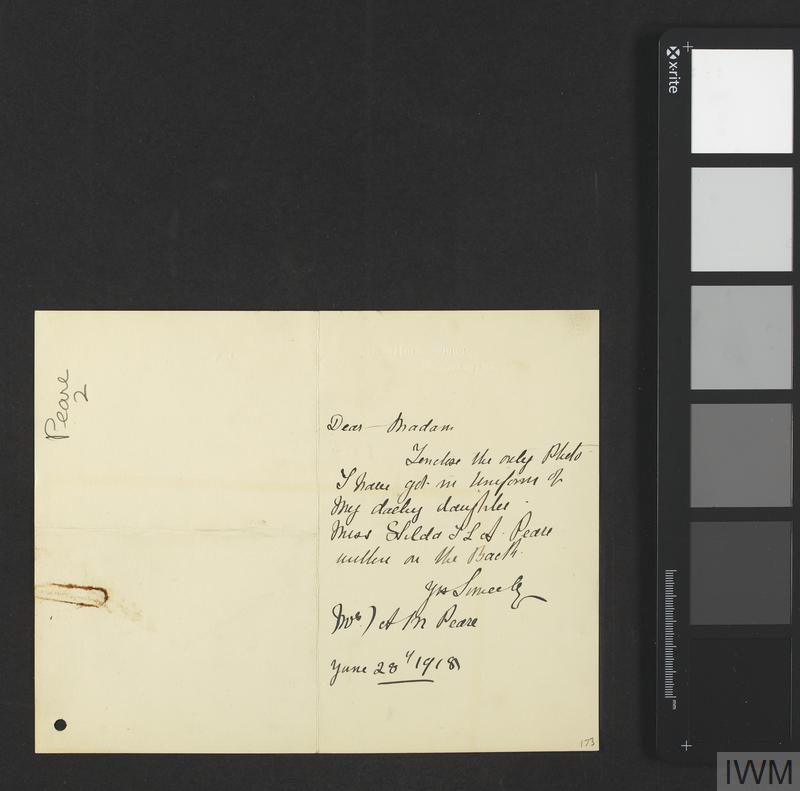 Peare
2
Dear Madam
I enclose the only Photo
I have got in Uniform of
My daughter
Miss Hilda Peare
written on the Back.
Yrs Sincerely
Mrs) A M Peare
June 28 1918
173
x-rite
mm
IWM